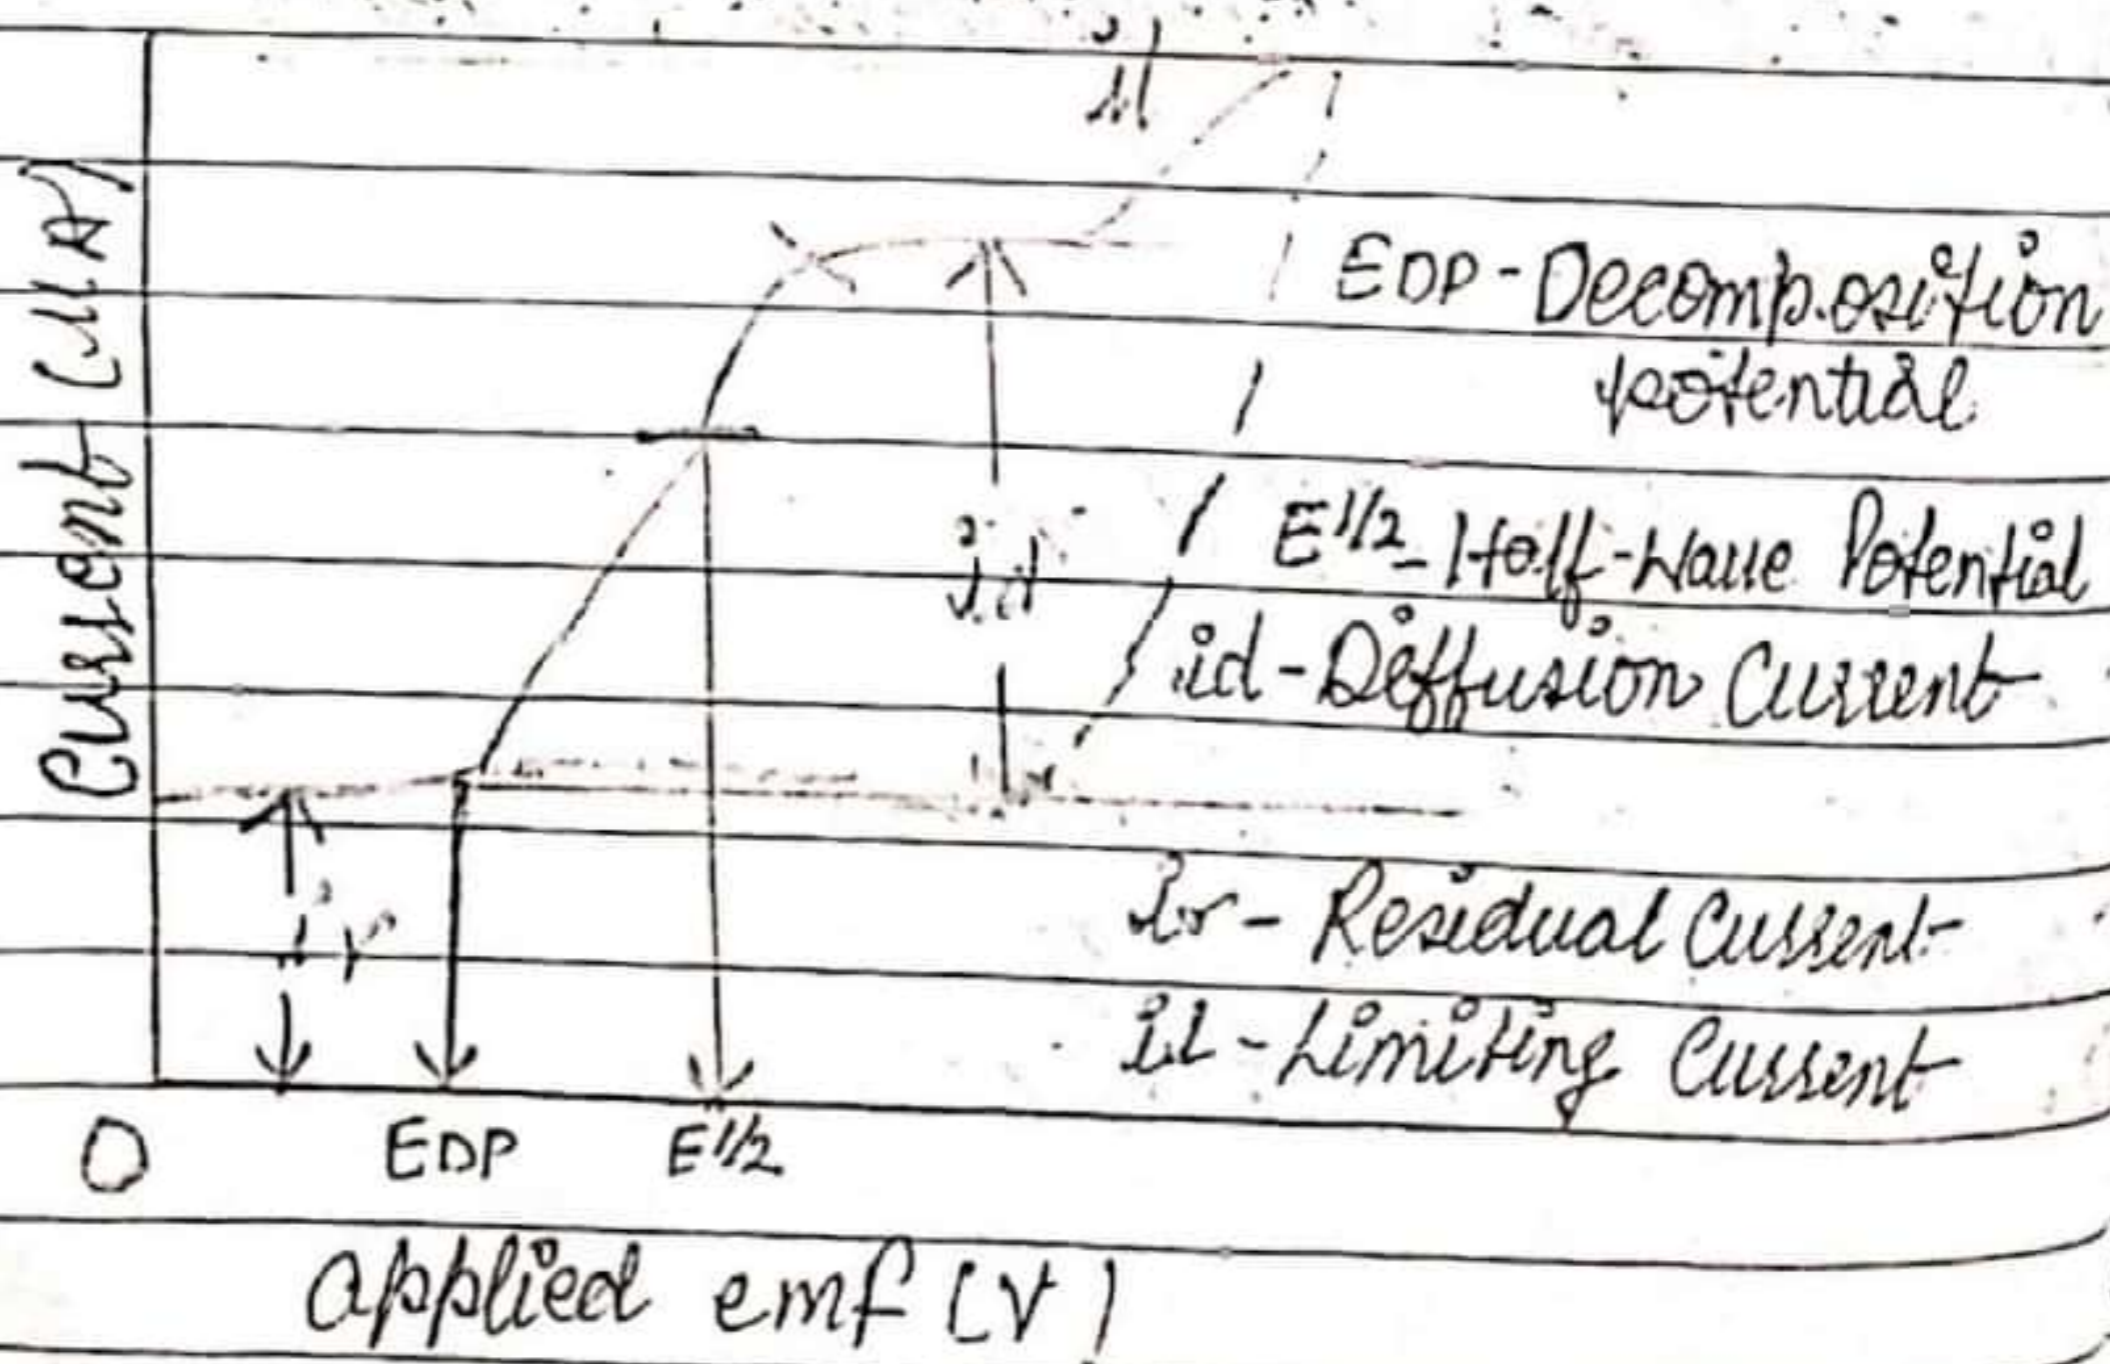 il
Current (μA)
EDP - Decomposition
potential
E1/2 - Half-Wave Potential
id
id - Diffusion Current
ir
ir - Residual Current
il - Limiting Current
O EDP E1/2
applied emf (V)